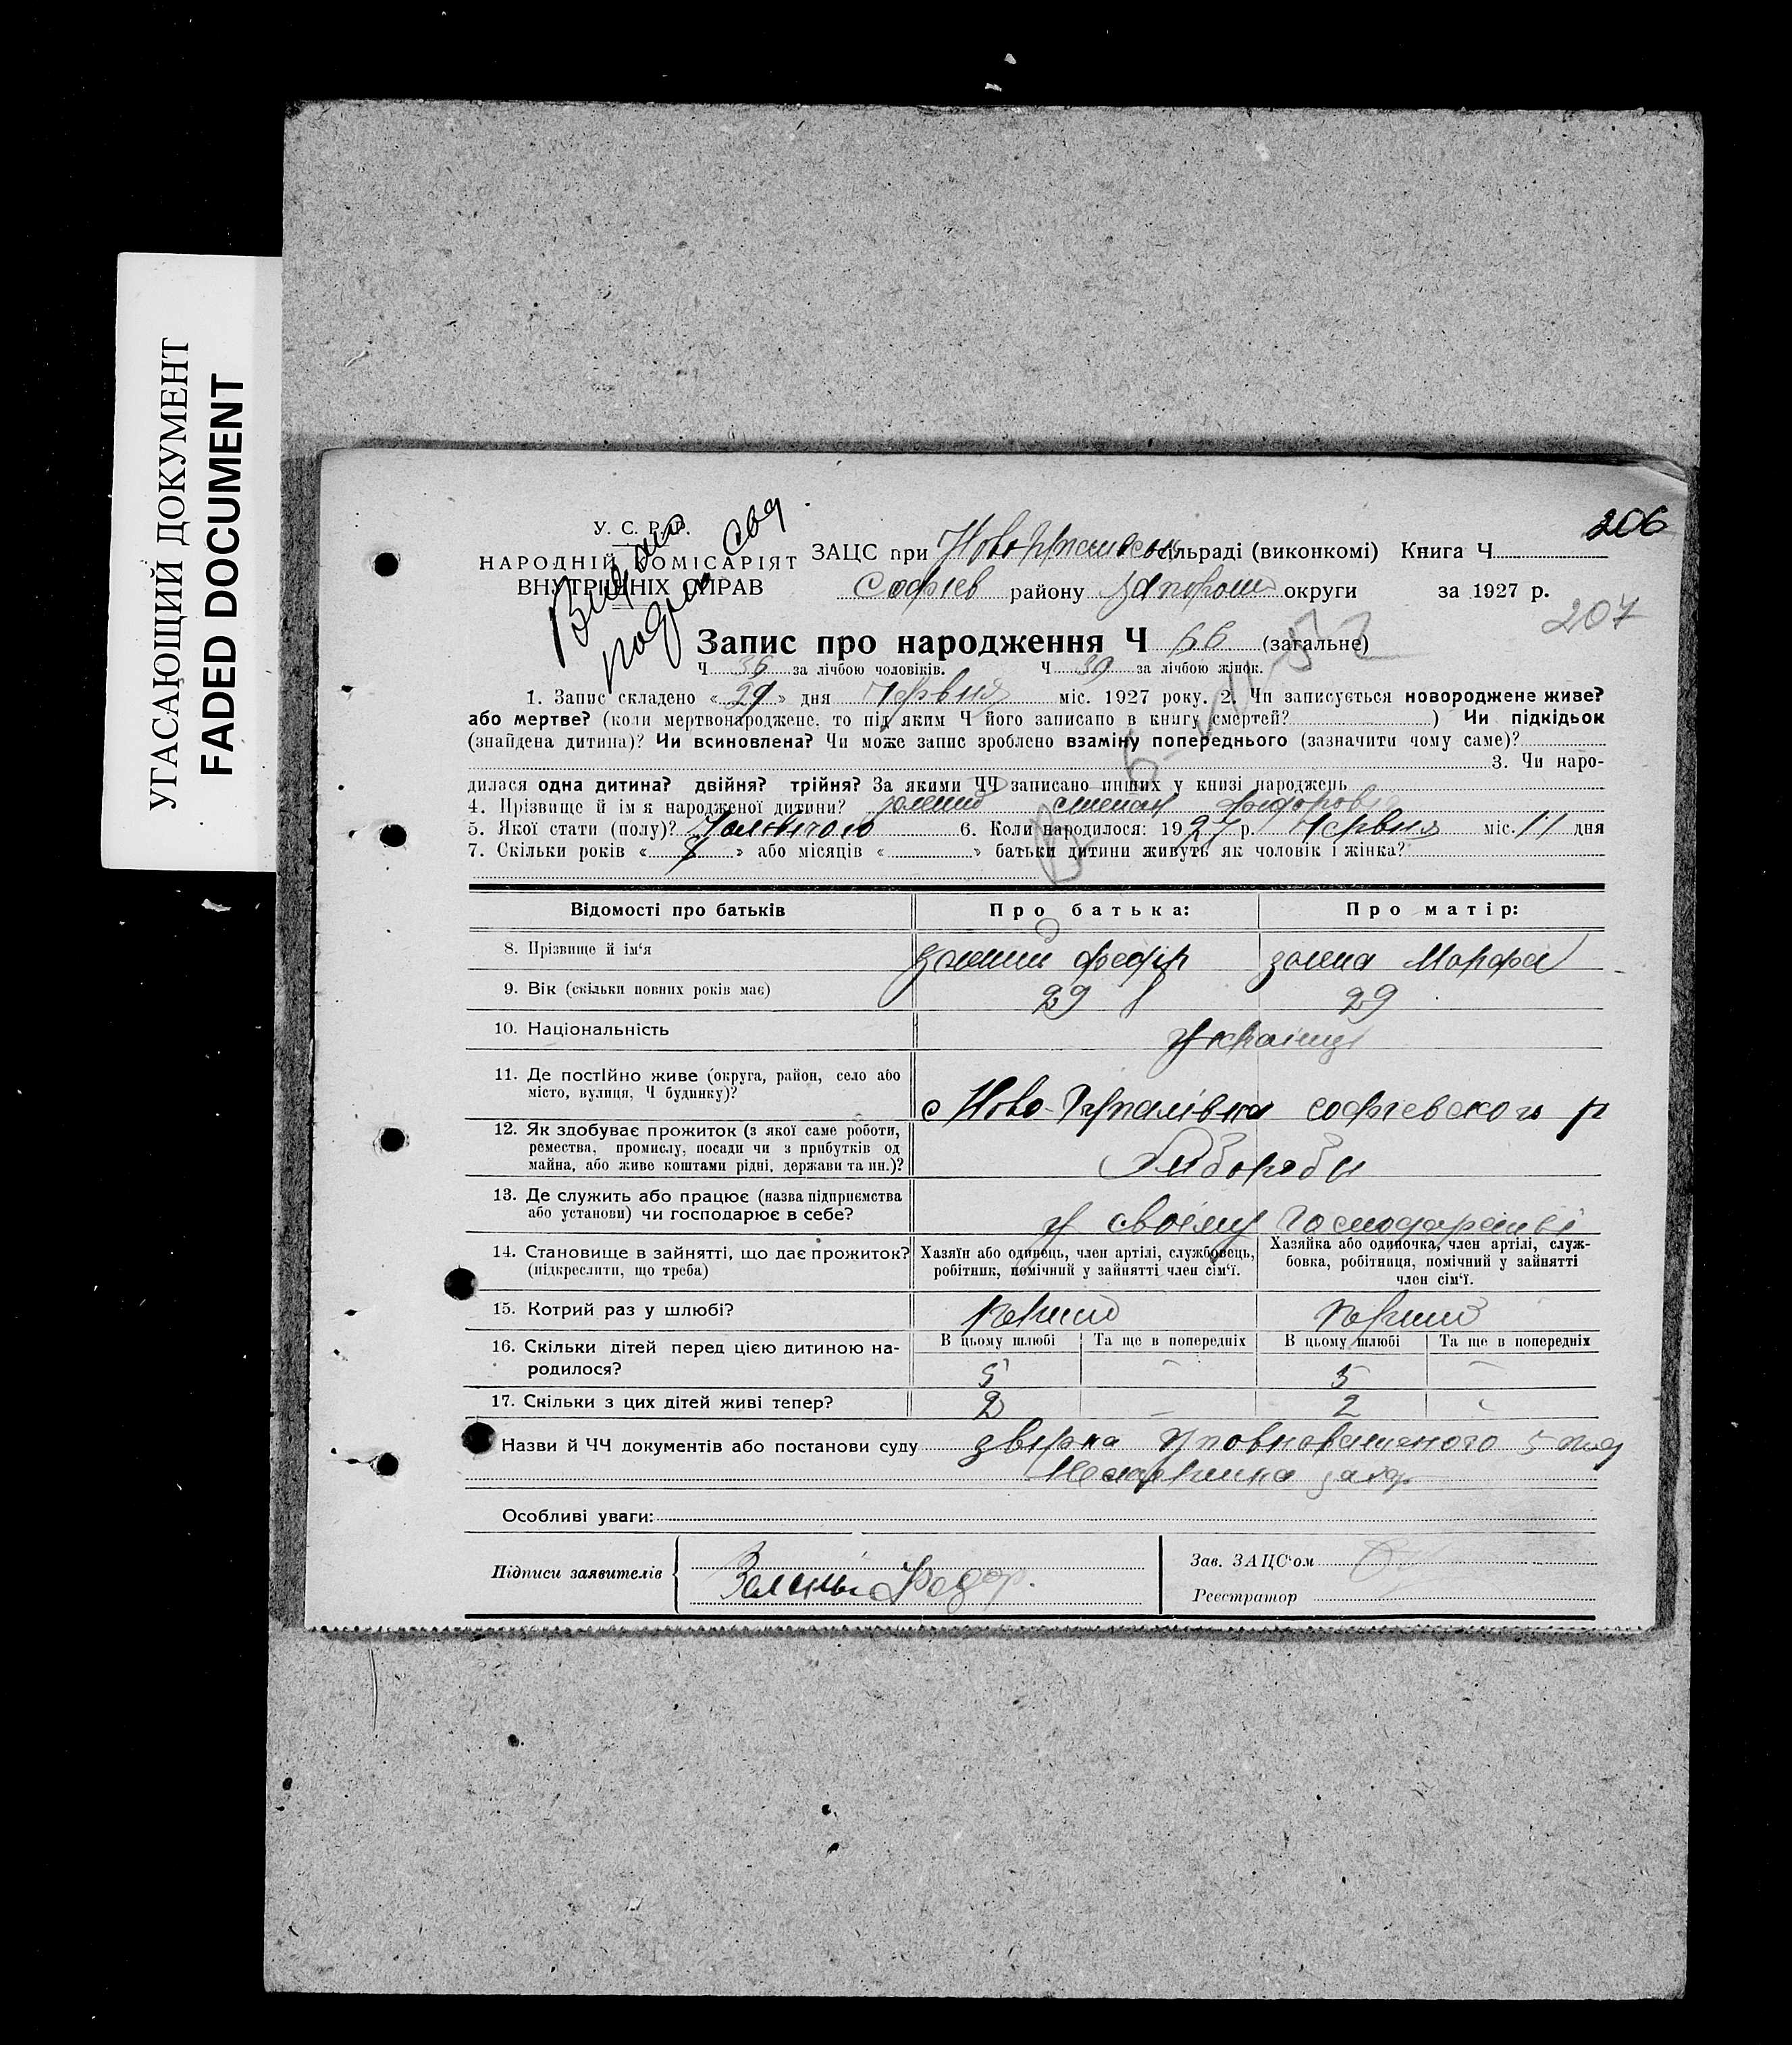 УГАСАЮЩИЙ ДОКУМЕНТ
FADED DOCUMENT
206
207
У. С. Р. Р.
НАРОДНІЙ КОМІСАРІЯТ
ВНУТРІШНІХ СПРАВ
Видано
ЗАЦС при сільраді (виконкомі) Книга Ч
Софіев району Запорош округи за 1927 р.
Запис про народження Ч 66 (загальне)
Ч 36 за лічбою чоловіків. Ч 30 за лічбою жінок.
1. Запис складено « 29 » дня Червня міс. 1927 року. 2. Чи записується новороджене живе?
або мертве? (коли мертвонароджене, то під яким Ч його записано в книгу смертей? ) Чи підкідьок
(знайдена дитина)? Чи всиновлена? Чи може запис зроблено взаміну попереднього (зазначити чому саме)?
3. Чи наро-
дилася одна дитина? двійня? трійня? За якими ЧЧ записано инших у книзі народжень
4. Прізвище й ім'я народженої дитини? золений степан Федорович
5. Якої стати (полу)? Чоловічого 6. Коли народилося: 1927 р. Червня міс. 11 дня
7. Скільки років « 8 » або місяців « » батьки дитини живуть як чоловік і жінка?
Відомості про батьків Про батька: Про матір:
8. Прізвище й ім'я золений федір золена Марфа
9. Вік (скільки повних років має) 29 29
10. Національність Українці
11. Де постійно живе (округа, район, село або
місто, вулиця, Ч будинку)? с Ново-Гупалівка софіевского р
12. Як здобуває прожиток (з якої саме роботи,
ремества, промислу, посади чи з прибутків од
майна, або живе коштами рідні, держави та ин.)? Хлібороби
13. Де служить або працює (назва підприємства
або установи) чи господарює в себе? У своїму Господарстві
14. Становище в зайнятті, що дає прожиток? Хазяїн або одинець, член артілі, службовець, Хазяйка або одиночка, член артілі, служ-
(підкреслити, що треба) робітник, помічний у зайнятті член сім'ї. бовка, робітниця, помічний у зайнятті
член сім'ї.
15. Котрий раз у шлюбі? Перший Перший
В цьому шлюбі Та ще в попередніх В цьому шлюбі Та ще в попередніх
16. Скільки дітей перед цією дитиною на-
родилося? 5 – 5 –
17. Скільки з цих дітей живі тепер? 2 – 2
Назви й ЧЧ документів або постанови суду звірка уповноваженого 5
Особливі уваги:
Підписи заявителів Зелены Федор.
Зав. ЗАЦС'ом
Реєстратор